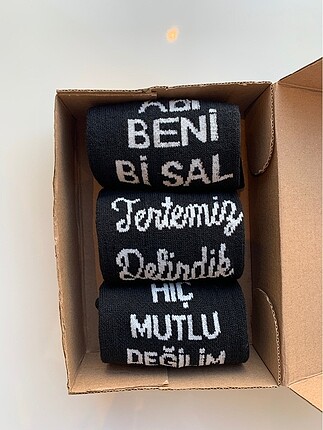 ABİ
BENİ
Bİ SAL
Tertemiz
Delirdik
HİÇ
MUTLU
DEĞİLİM